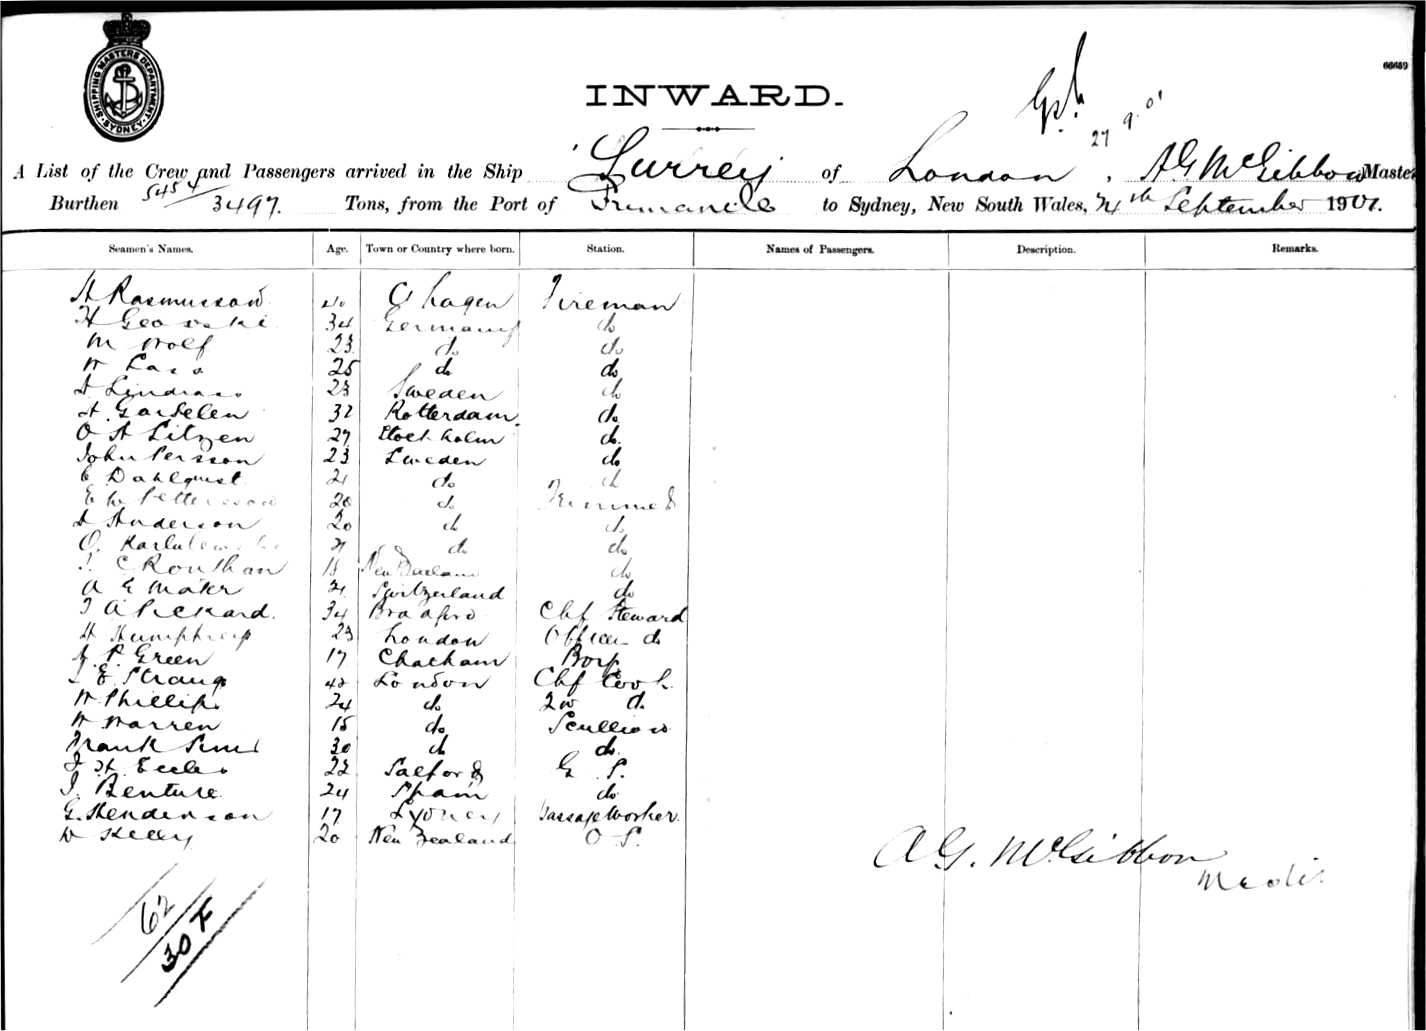 SHIPPING MASTERS DEPARTMENT
·SYDNEY·
66659
INWARD.
27 9 01
A List of the Crew and Passengers arrived in the Ship Surrey of London, A G McGibbon Master
Burthen 5454/3497. Tons, from the Port of Fremantle to Sydney, New South Wales, 24th September 1901.
Seamen's Names. Age. Town or Country where born. Station. Names of Passengers. Description. Remarks.
H Rasmusson 40 C'hagen Fireman
34 Germany do
M Wolf 23 do do
W Lass 25 do do
23 Sweden do
32 Rotterdam do
O A Litzen 27 Stockholm do
John Persson 23 Sweden do
E Dahlquist 21 do do
Pettersson 20 do Trimmer
A Anderson 20 do do
O. do do
C Routhan New Zealand do
A E Mater 21 Switzerland do
J A Pickard. 34 Bradford Chf Steward
H Humphreys 23 London Officers do
P. Green 17 Chatham Boy
E Strang 42 London Chf Cook
W Phillips 24 do 2nd do
W Warren 18 do Scullion
Frank Sims 30 do do
J H Eccles 22 Salford G. S.
J. Benture 24 Spain do
G. Henderson 17 Sydney Passage Worker
W Kelly 20 New Zealand O. S.
A G. McGibbon
Master
62
30 F